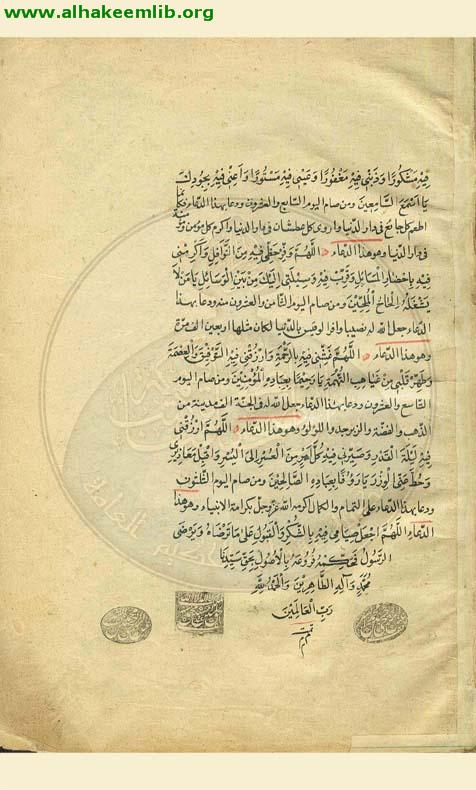 www.alhakeemlib.org
فيه مشكورًا وذنبي فيه مغفورًا وعيبي فيه مستورًا وأعنّي فيه بجودك
يا أسمع السامعين ومن صام اليوم السابع والعشرون ودعا بهذا الدعاء فكأنما
اطعم كل جائع في دار الدنيا واروى كل عطشان في دار الدنيا واكرم كل مؤمن
في دار الدنيا وهو هذا الدعاء اللّهمّ وفّر حظّي فيه من النّوافل وأكرمني
فيه بإحضار المسائل وقرّب فيه وسيلتي إليك من بين الوسائل يا من لا
يشغله إلحاح الملحّين ومن صام اليوم الثامن والعشرون منه ودعا بهذا
الدعاء جعل الله له نصيبا وافرا لو قيس بالدنيا لكان مثلها اربعين الف مرّة
وهو هذا الدعاء اللّهمّ غشّني فيه بالرّحمة وارزقني فيه التّوفيق والعصمة
وطهّر قلبي من غياهب التّهمة يا رحيمًا بعباده المؤمنين ومن صام اليوم
التاسع والعشرون ودعا بهذا الدعاء جعل الله له في الجنة الف مدينة من
الذهب والفضة والزبرجد واللؤلؤ وهو هذا الدعاء اللّهمّ ارزقني
فيه ليلة القدر وصيّر لي فيه كل أمر من العسر إلى اليسر واقبل معاذيري
وحطّ عنّي الوزر يا رؤفًا بعباده الصالحين ومن صام اليوم الثلثون
ودعا بهذا الدعاء على التمام والكمال اكرمه الله عز وجل بكرامة الانبياء وهو هذا
الدعاء اللّهمّ اجعل صيامي فيه بالشّكر والقبول على ما ترضاه ويرضى
الرّسول محكمة فروعه بالأصول بحقّ سيّدنا
محمّد وآله الطّاهرين والحمد للّه
ربّ العالمين
تمت